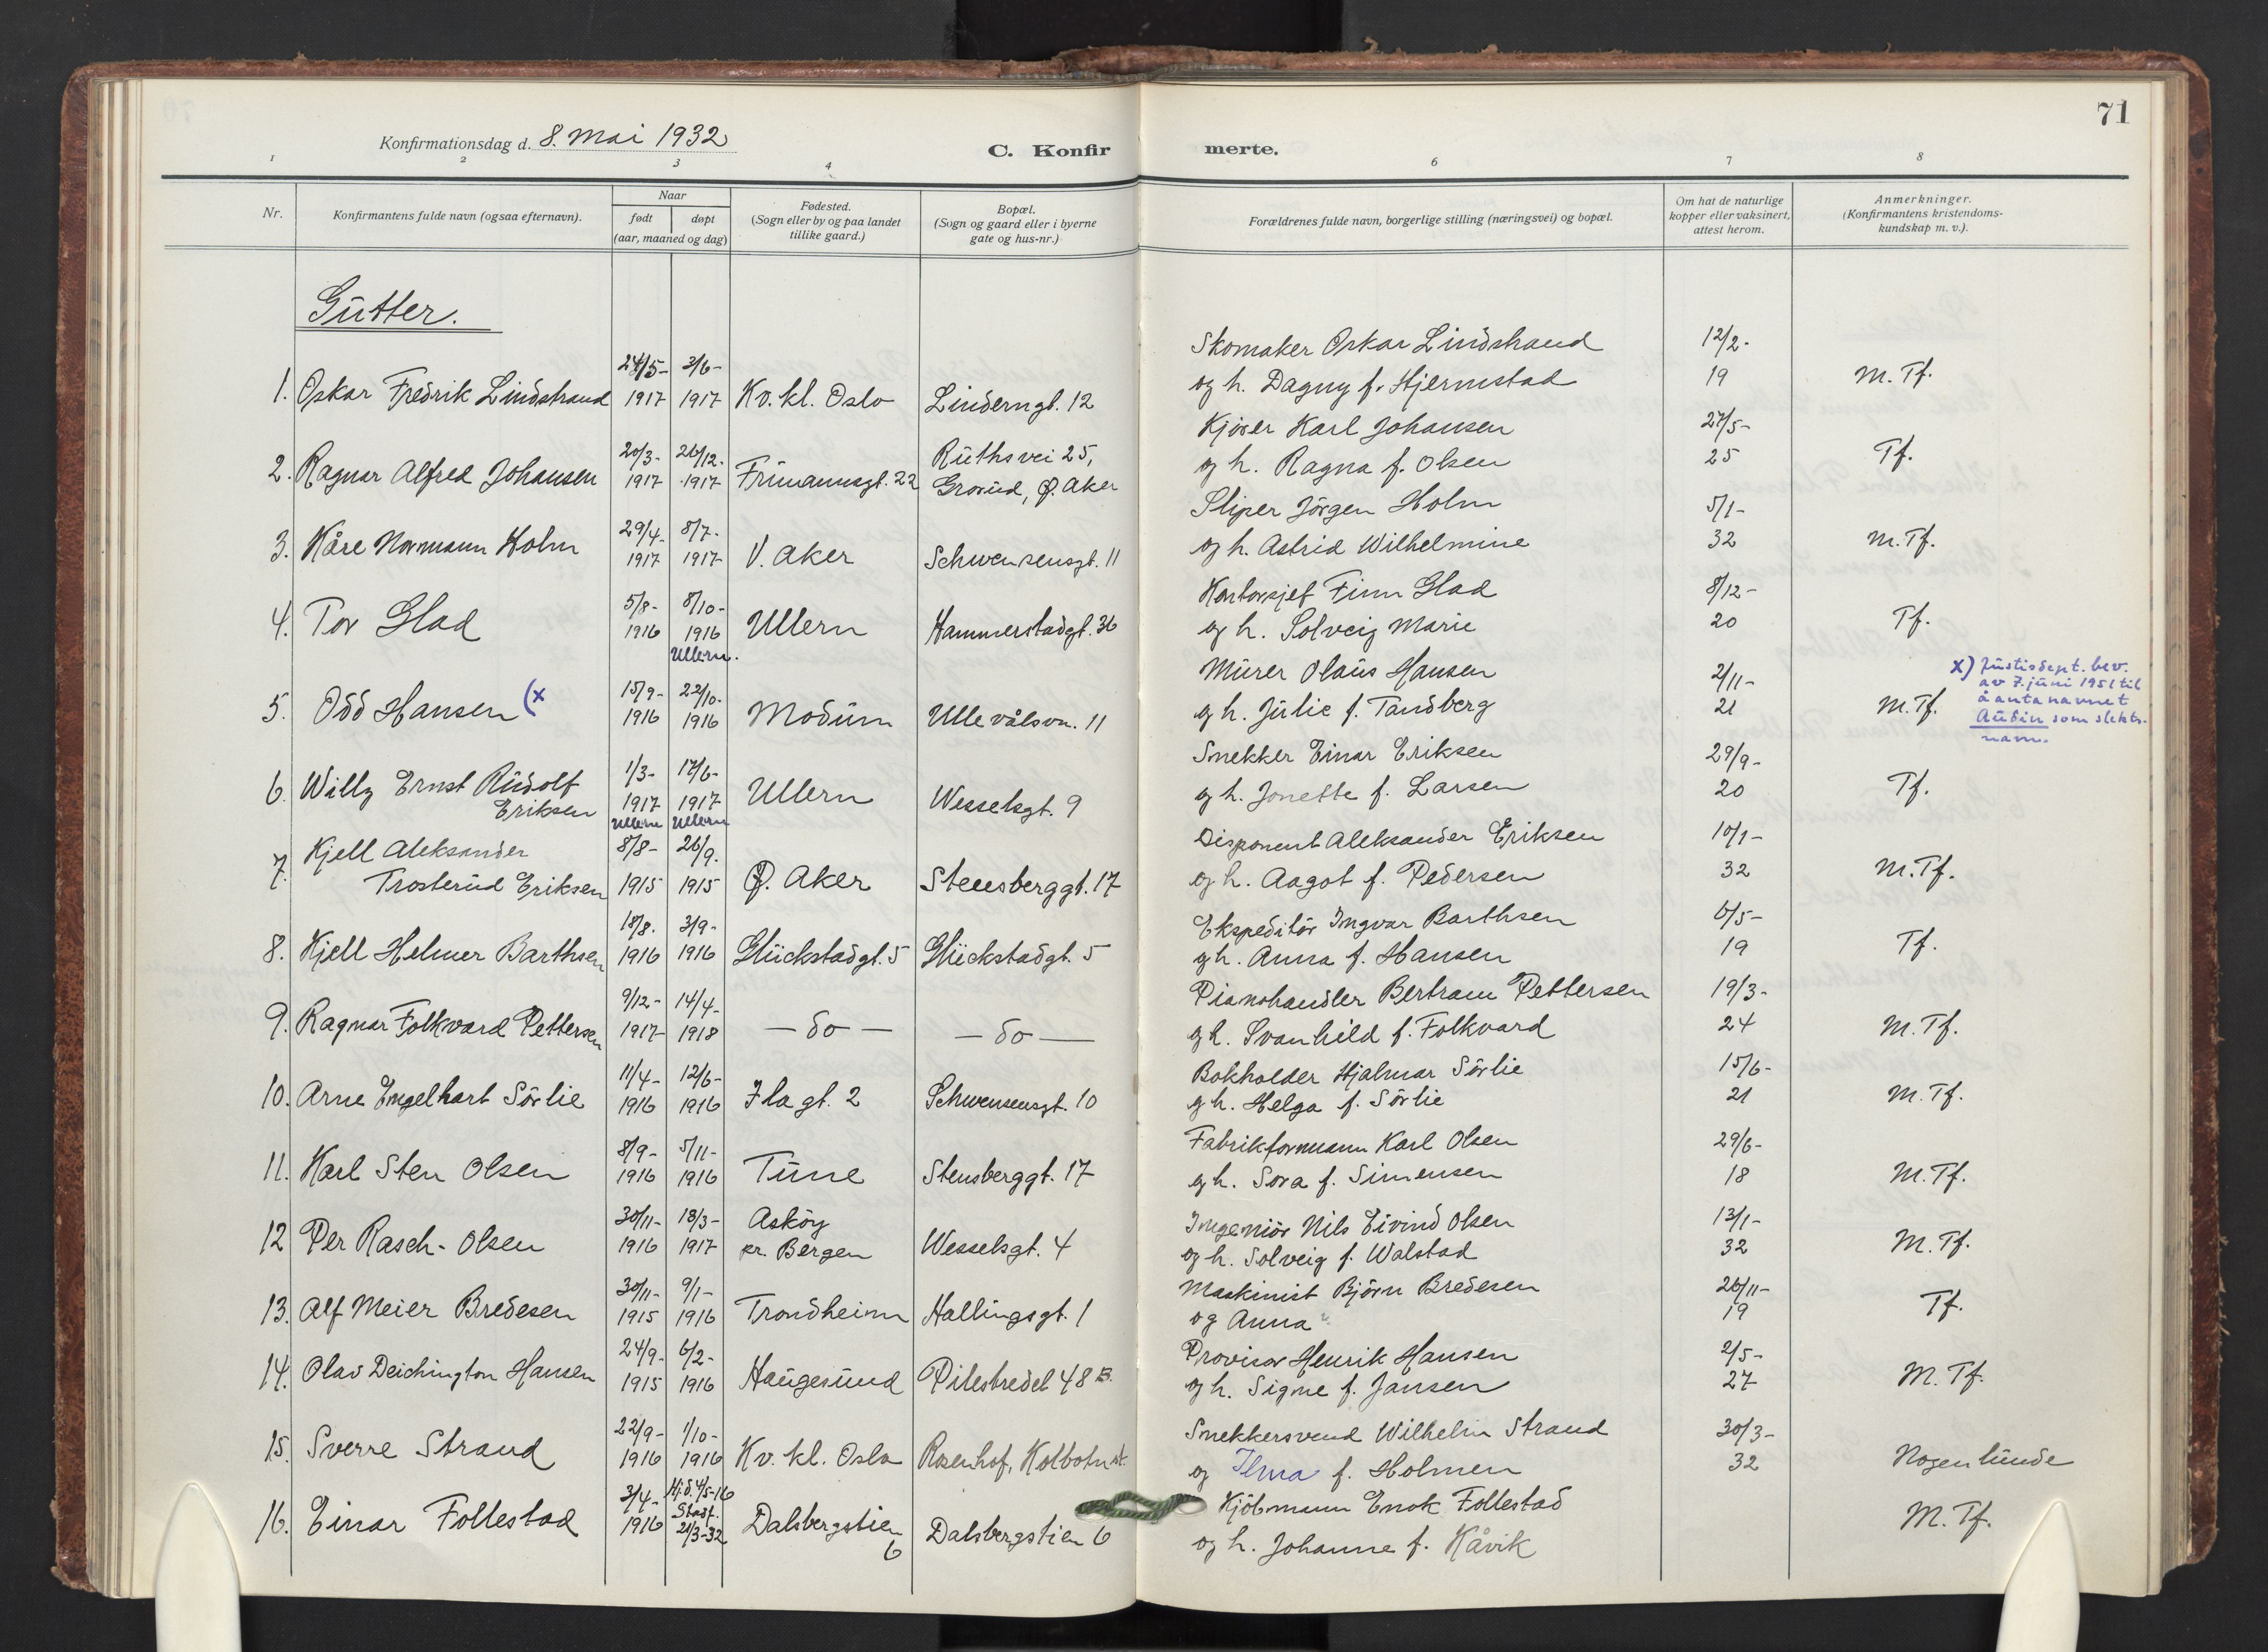 71
Konfirmationsdag d. 8. Mai 1932
C. Konfirmerte.
1 2 3 4 6 7 8
Nr.
Konfirmantens fulde navn (ogsaa efternavn).
Naar
født døpt
(aar, maaned og dag)
Fødested.
(Sogn eller by og paa landet
tillike gaard.)
Bopæl.
(Sogn og gaard eller i byerne
gate og hus-nr.)
Forældrenes fulde navn, borgerlige stilling (næringsvei) og bopæl.
Om hat de naturlige
kopper eller vaksinert,
attest herom.
Anmerkninger.
(Konfirmantens kristendoms-
kundskap m. v.).
Gutter.
24/5- 3/6- Skomaker Oskar Lindstrand 12/2-
1. Oskar Fredrik Lindstrand 1917 1917 Kv. kl. Oslo Linderngt. 12 og h. Dagny f. Hjermstad 19 M. Tf.
20/3- 26/12- Ruths vei 25, Kjører Karl Johansen 27/5-
2. Ragnar Alfred Johansen 1917 1917 Frimannsgt. 22 Grorud, Ø. Aker og h. Ragna f. Olsen 25 Tf.
29/4- 8/7- Sliper Jörgen Holm 5/1-
3. Kåre Normann Holm 1917 1917 V. Aker Schwensensgt. 11 og h. Astrid Wilhelmine 32 M. Tf.
5/8- 8/10- Kontorsjef Finn Glad 8/12-
4. Tor Glad 1916 1916 Ullern Hammerstadgt. 36 og h. Solveig Marie 20 Tf.
Ullern.
15/9- 22/10- Murer Olaus Hansen 2/11-
5. Odd Hansen (x 1916 1916 Modum Ullevålsvn. 11 og h. Julie f. Tandberg 21 M. Tf.
x) Justisdept. bev.
av 7. juni 1951 til
å anta navnet
Audin som slekts-
navn.
1/3- 17/6- Snekker Einar Eriksen 29/9-
6. Willy Ernst Rudolf 1917 1917 Ullern Wesselsgt. 9 og h. Jonette f. Larsen 20 Tf.
Eriksen Ullern Ullern
7. Kjell Aleksander 8/8- 26/9. Disponent Aleksander Eriksen 10/1-
Trosterud Eriksen 1915 1915 Ø. Aker Stensberggt. 17 og h. Aagot f. Pedersen 32 M. Tf.
18/8. 3/9- Ekspeditör Ingvar Barthsen 6/5-
8. Kjell Helmer Barthsen 1916 1916 Glückstadgt. 5 Glückstadgt. 5 og h. Anna f. Hansen 19 Tf.
9/12- 14/4- Pianohandler Bertram Pettersen 19/3-
9. Ragnar Folkvard Pettersen 1917 1918 — do — — do — og h. Svanhild f. Folkvard 24 M. Tf.
11/4- 12/6- Bokholder Hjalmar Sörlie 15/6-
10. Arne Engelhart Sörlie 1916 1916 Ila gt. 2 Schwensensgt. 10 og h. Helga f. Sörlie 21 M. Tf.
8/9- 5/11- Fabrikformann Karl Olsen 29/6-
11. Karl Sten Olsen 1916 1916 Tune Stensberggt. 17 og h. Sora f. Simensen 18 M. Tf.
30/11- 18/3- Asköy Ingeniör Nils Eivind Olsen 13/1-
12 Per Rasch-Olsen 1916 1917 pr. Bergen Wesselsgt. 4 og h. Solveig f. Walstad 32 M. Tf.
30/11- 9/1- Maskinist Björn Bredesen 26/11-
13. Alf Meier Bredesen 1915 1916 Trondheim Hallingsgt. 1 og Anna 19 Tf.
24/9- 6/2- Provisor Henrik Hansen 2/5-
14. Olav Deichington Hansen 1915 1916 Haugesund Pilestredet 48 B. og h. Signe f. Jansen 27 M. Tf.
22/9- 1/10- Snekkersvend Wilhelm Strand 30/3-
15. Sverre Strand 1916 1916 Kv. kl. Oslo Rosenhof, Kolbotn st. og Ilma f. Holmen 32 Nogenlunde
3/4- Hj.d. 4/5-16 Kjöbmann Enok Follestad
16. Einar Follestad 1916 Stadf. 21/3-32 Dalsbergstien 6 Dalsbergstien 6 og h. Johanne f. Kåvik M. Tf.